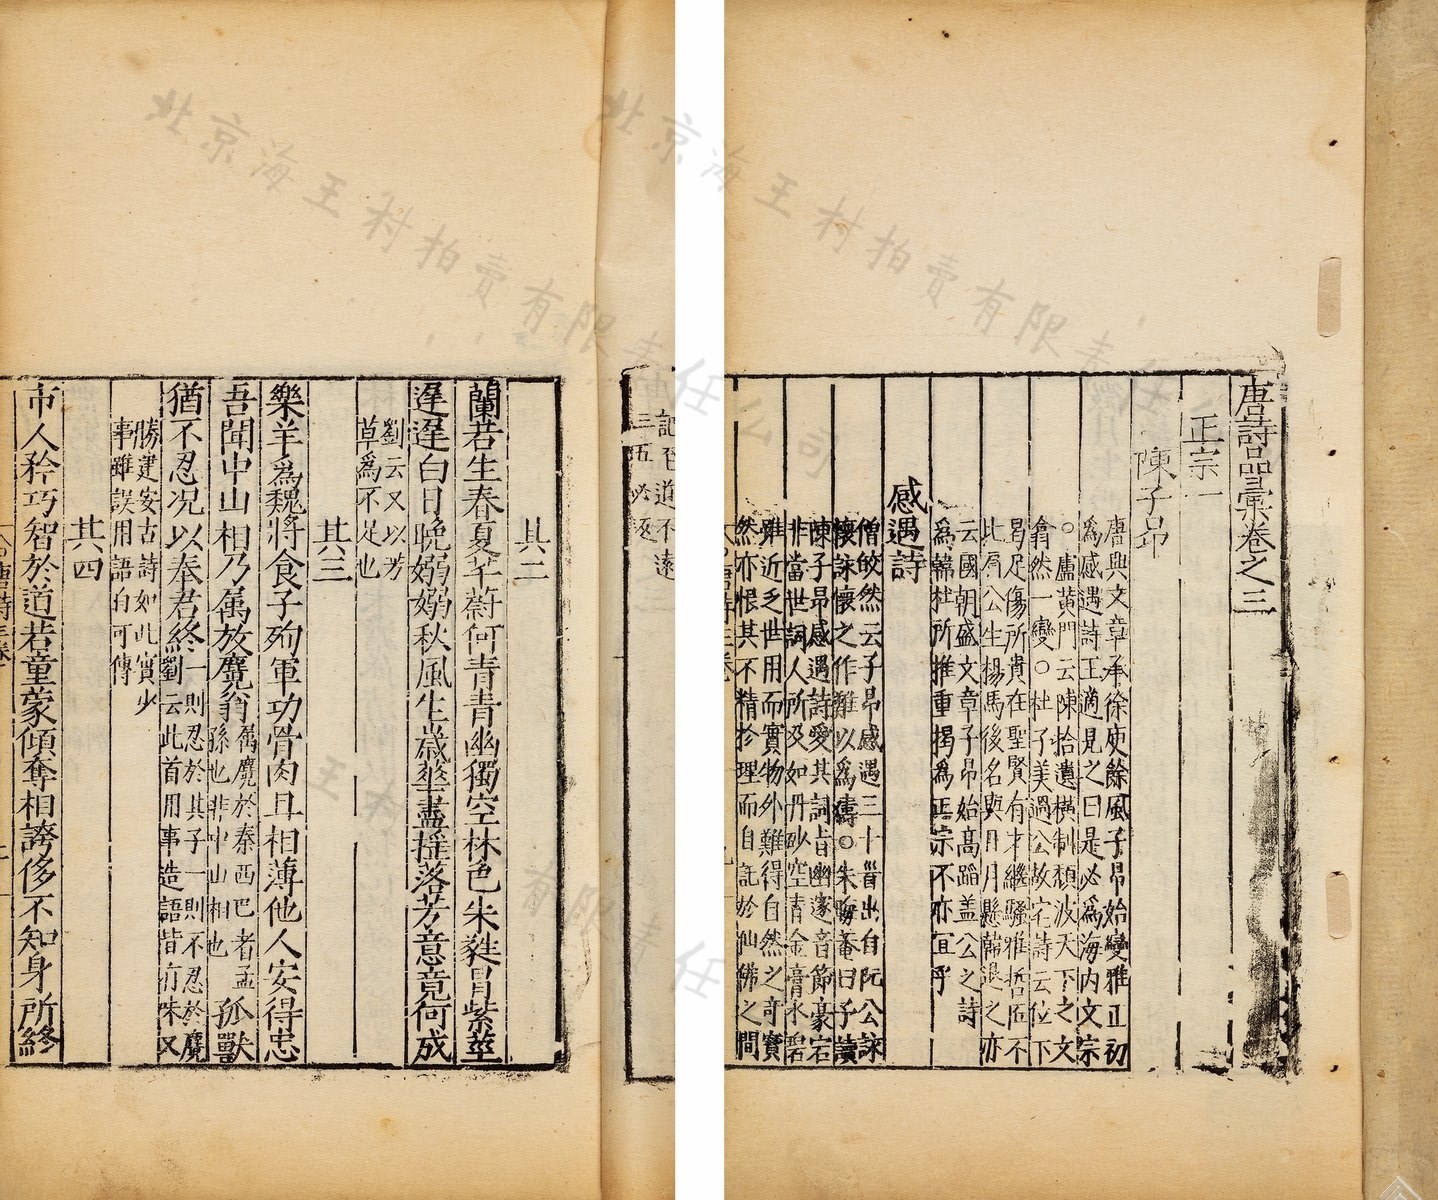 唐詩品彙卷之三
正宗一
陳子昻
唐興文章承徐庾餘風子昻始變雅正初
爲感遇詩王適見之曰是必爲海内文宗
○盧黄門云陳拾遺橫制頹波天下之文
翕然一變○杜子美過公故宅詩云位下
曷足傷所貴在聖賢有才繼騷雅哲匠不
比肩公生揚馬後名與日月懸韓退之亦
云國朝盛文章子昻始髙蹈盖公之詩
爲韓杜所推重揭爲正宗不亦宜乎
感遇詩
僧皎然云子昻感遇三十首出自阮公詠
懷詠懷之作難以爲儔○朱晦菴曰予讀
陳子昻感遇詩愛其詞旨幽邃音節豪宕
非當世詞人所及如丹砂空青金膏水碧
雖近乏世用而實物外難得自然之奇寳
然亦恨其不精於理而自託於仙佛之間
其二
蘭若生春夏芊蔚何青青幽獨空林色朱蕤冒紫莖
遲遲白日晚嫋嫋秋風生歲華盡揺落芳意竟何成
劉云又以芳
草爲不足也
其三
樂羊爲魏將食子殉軍功骨肉且相薄他人安得忠
吾聞中山相乃属放麑翁属麑於秦西巴者孟孫也非中山相也孤獸
猶不忍况以奉君終一則忍於其子一則不忍於麑劉云此首用事造語皆有味又
勝建安古詩如此實少
事雖誤用語自可傳
其四
市人矜巧智於道若童蒙傾奪相誇侈不知身所終
北京海王村拍賣有限責任公司